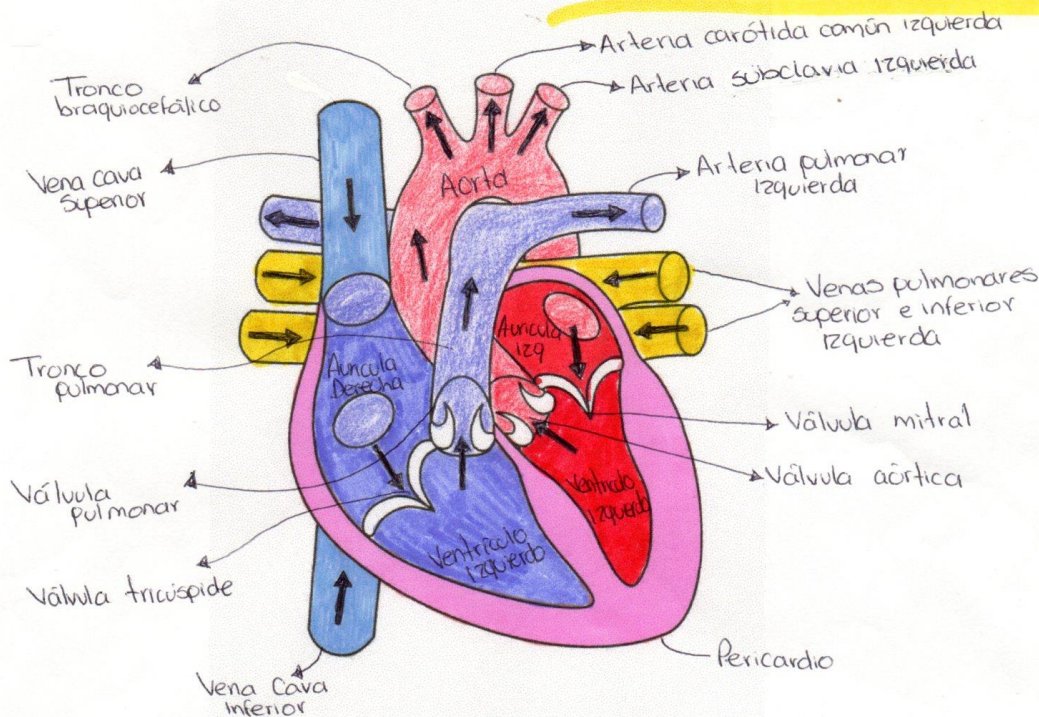 Arteria carótida común izquierda
Arteria subclavia izquierda
Tronco
braquiocefálico
Vena cava
superior
Aorta
Arteria pulmonar
izquierda
Venas pulmonares
superior e inferior
izquierda
Tronco
pulmonar
Aurícula
Derecha
Aurícula
izq
Válvula mitral
Válvula aórtica
Válvula
pulmonar
Ventrículo
izquierdo
Ventrículo
izquierdo
Válvula tricúspide
Pericardio
Vena Cava
inferior